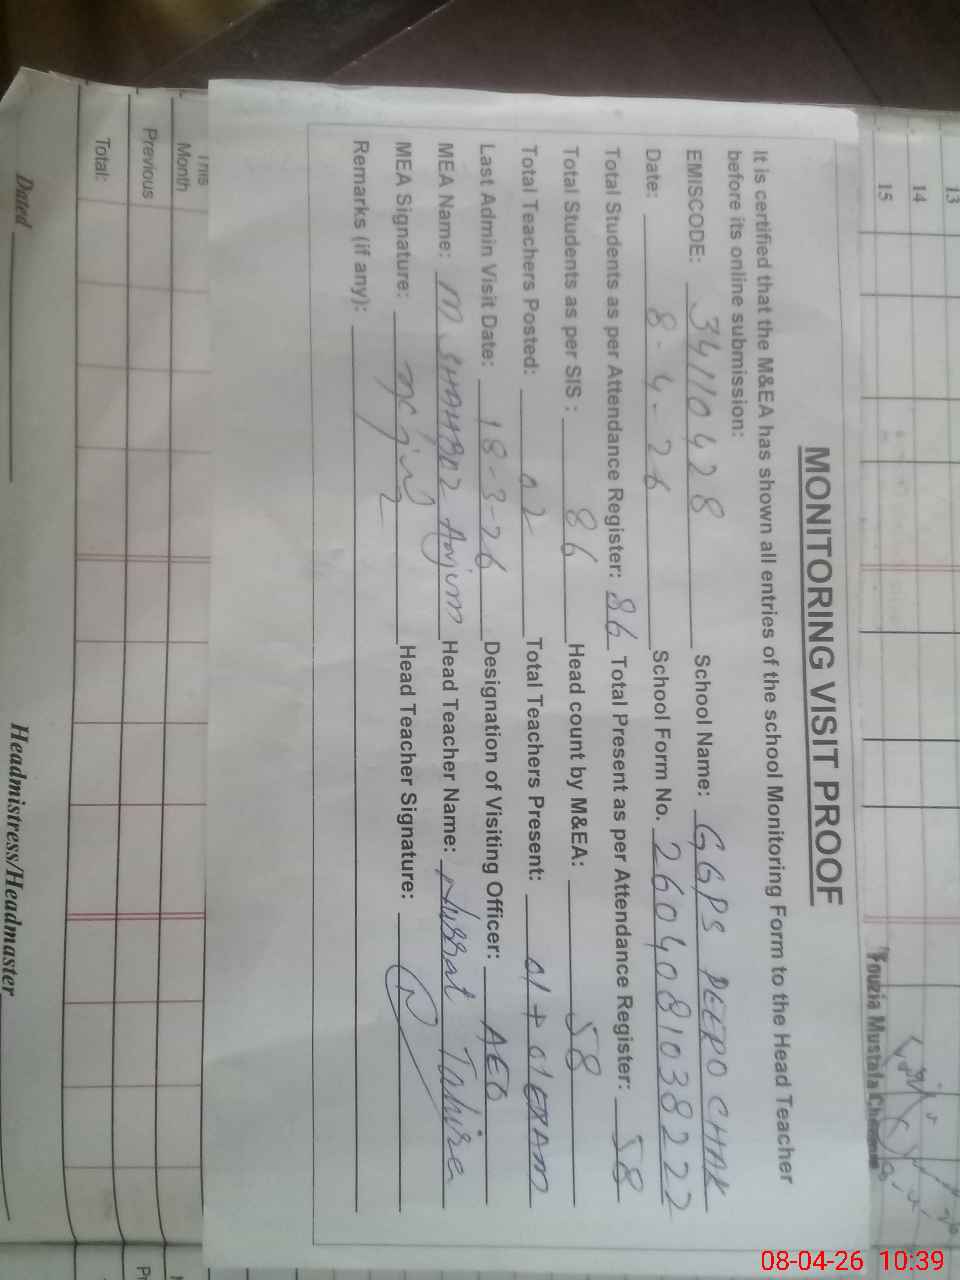 13
14
15
Fouzia Mustafa
MONITORING VISIT PROOF
It is certified that the M&EA has shown all entries of the school Monitoring Form to the Head Teacher
before its online submission:
EMISCODE: 34110428 School Name: GGPS PEERO CHAK
Date: 8-4-26 School Form No. 2604081038222
Total Students as per Attendance Register: 86 Total Present as per Attendance Register: 58
Total Students as per SIS : 86 Head count by M&EA: 58
Total Teachers Posted: 02 Total Teachers Present: 01 + 01 EXAM
Last Admin Visit Date: 18-3-26 Designation of Visiting Officer: AEO
MEA Name: M Anjum Head Teacher Name: Nusrat Tahira
MEA Signature: Head Teacher Signature:
Remarks (if any):
This
Month
Previous
Total:
Dated Headmistress/Headmaster
08-04-26 10:39